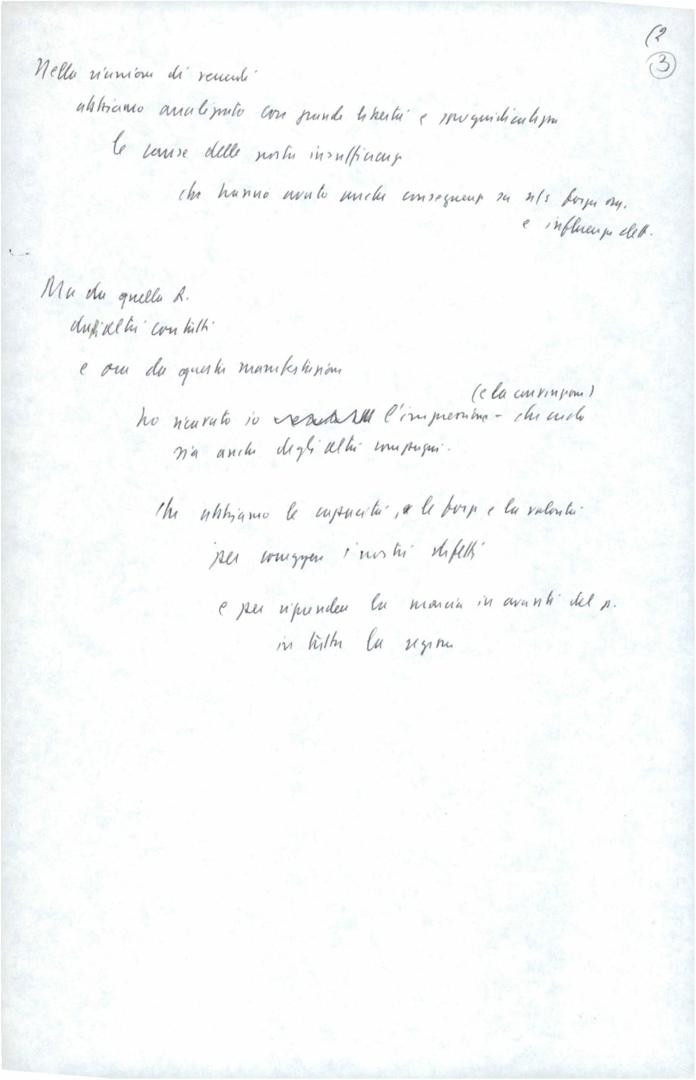 (2
3
Nella riunione di venerdì
abbiamo analizzato con grande libertà e spregiudicatezza
le cause delle nostre insufficienze
che hanno avuto anche conseguenze su n/s forza org.
e influenza elett.
Ma da quella R.
dagli altri contatti
e ora da questa manifestazione
(e la convinzione)
ho ricavato io l'impressione - che credo
sia anche degli altri compagni.
Che abbiamo le capacità, le forze e la volontà
per correggere i nostri difetti
e per riprendere la marcia in avanti del p.
in tutta la regione